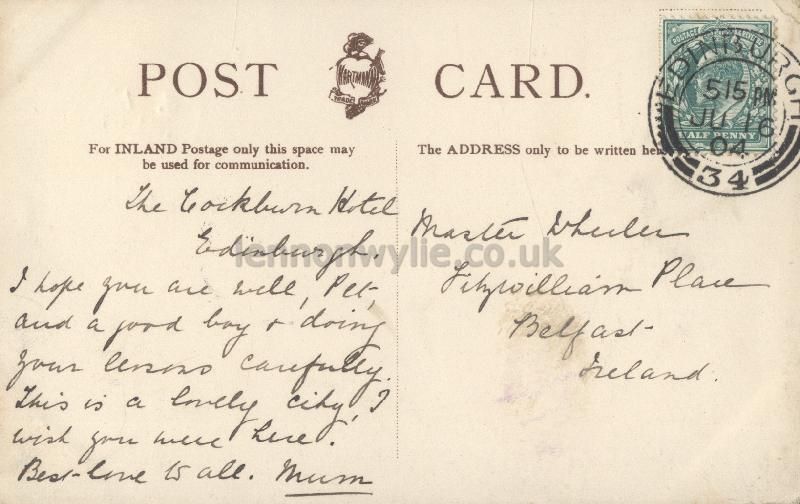 POST CARD.
HARTMANN
TRADE MARK
For INLAND Postage only this space may
be used for communication.
The ADDRESS only to be written here
POSTAGE
HALF PENNY
EDINBURGH
5 15 PM
JU 16
04
34
The Cockburn Hotel
Edinburgh.
I hope you are well, Pet,
and a good boy & doing
your lessons carefully.
This is a lovely city, I
wish you were here.
Best love to all. Mum
Master Wheeler
Fitzwilliam Place
Belfast
Ireland.
lennonwylie.co.uk